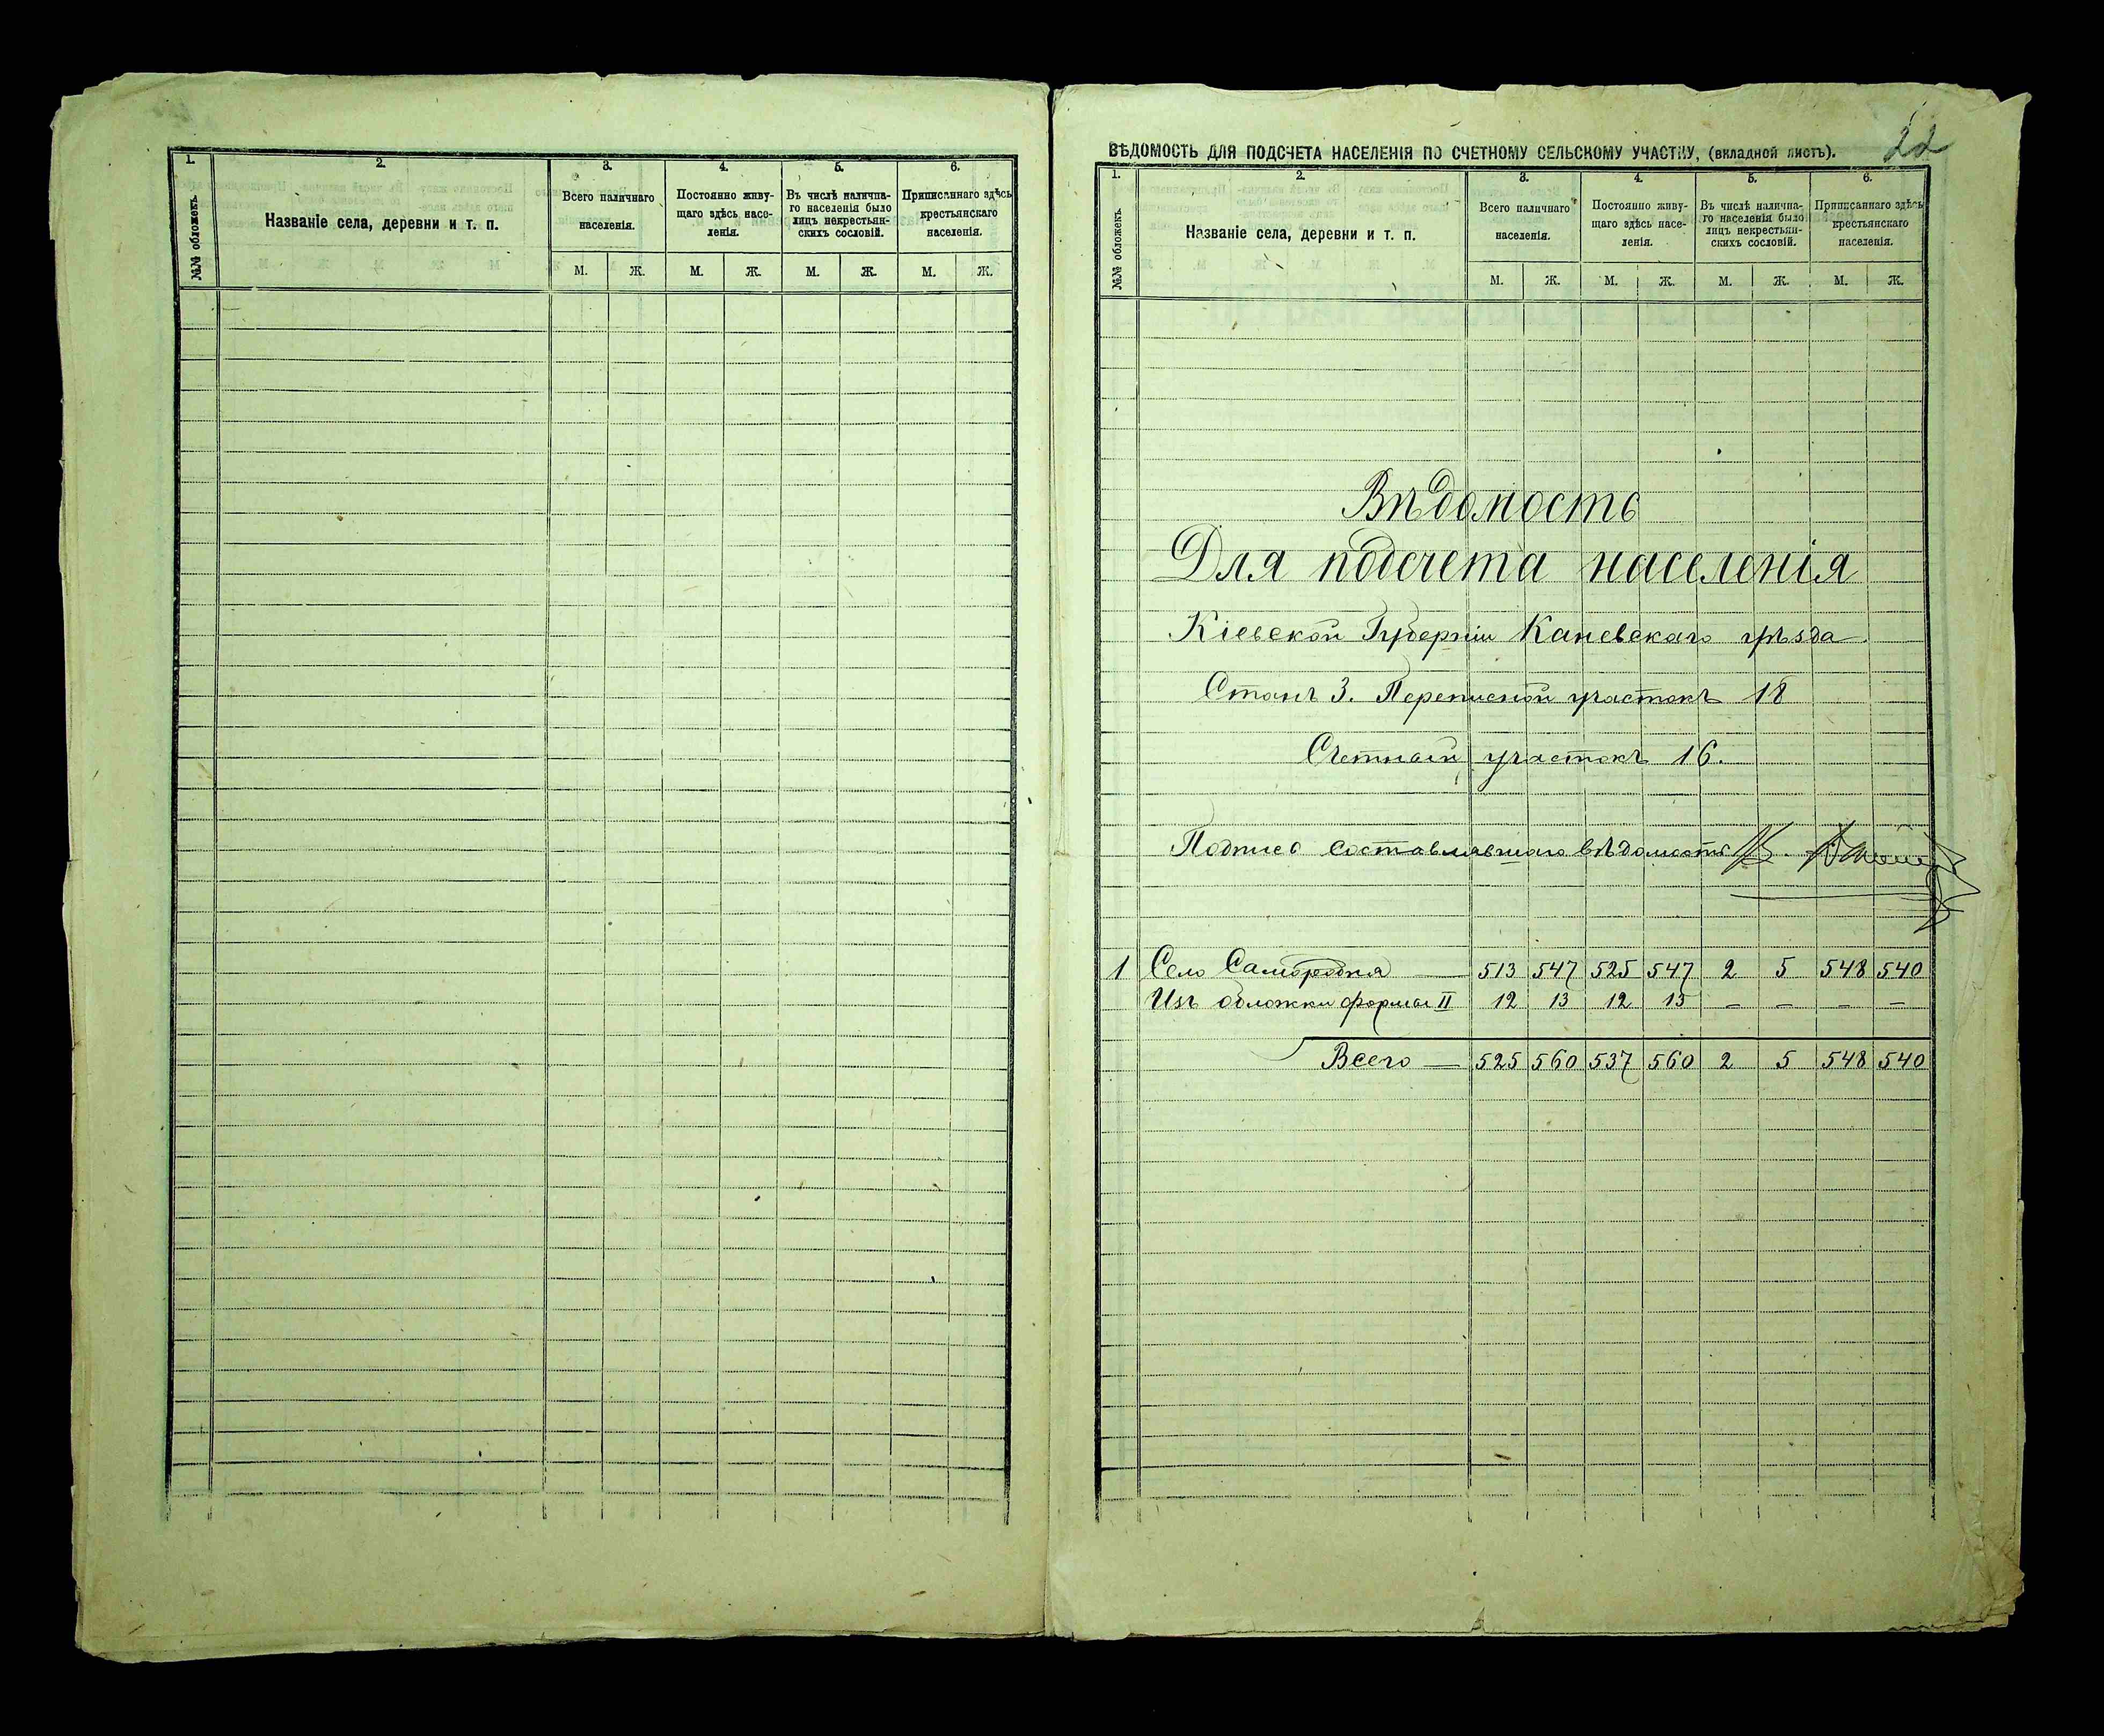 1. 2. 3. 4. 5. 6.
№№ обложекъ.
Названіе села, деревни и т. п.
Всего наличнаго
населенія.
Постоянно живу-
щаго здѣсь насе-
ленія.
Въ числѣ налична-
го населенія было
лицъ некрестьян-
скихъ сословій.
Приписаннаго здѣсь
крестьянскаго
населенія.
М. Ж. М. Ж. М. Ж. М. Ж.
22
ВѢДОМОСТЬ ДЛЯ ПОДСЧЕТА НАСЕЛЕНІЯ ПО СЧЕТНОМУ СЕЛЬСКОМУ УЧАСТКУ, (вкладной листъ).
1. 2. 3. 4. 5. 6.
№№ обложекъ.
Названіе села, деревни и т. п.
Всего наличнаго
населенія.
Постоянно живу-
щаго здѣсь насе-
ленія.
Въ числѣ налична-
го населенія было
лицъ некрестьян-
скихъ сословій.
Приписаннаго здѣсь
крестьянскаго
населенія.
М. Ж. М. Ж. М. Ж. М. Ж.
Вѣдомость
Для подсчета населенія
Кіевской Губерніи Каневскаго уѣзда.
Станъ 3. Переписной участокъ 18
Счетный участокъ 16.
Подпись составлявшаго вѣдомость
1 Село Самородня — 513 547 525 547 2 5 548 540
Изъ обложки формы II 12 13 12 13 — — — —
Всего — 525 560 537 560 2 5 548 540